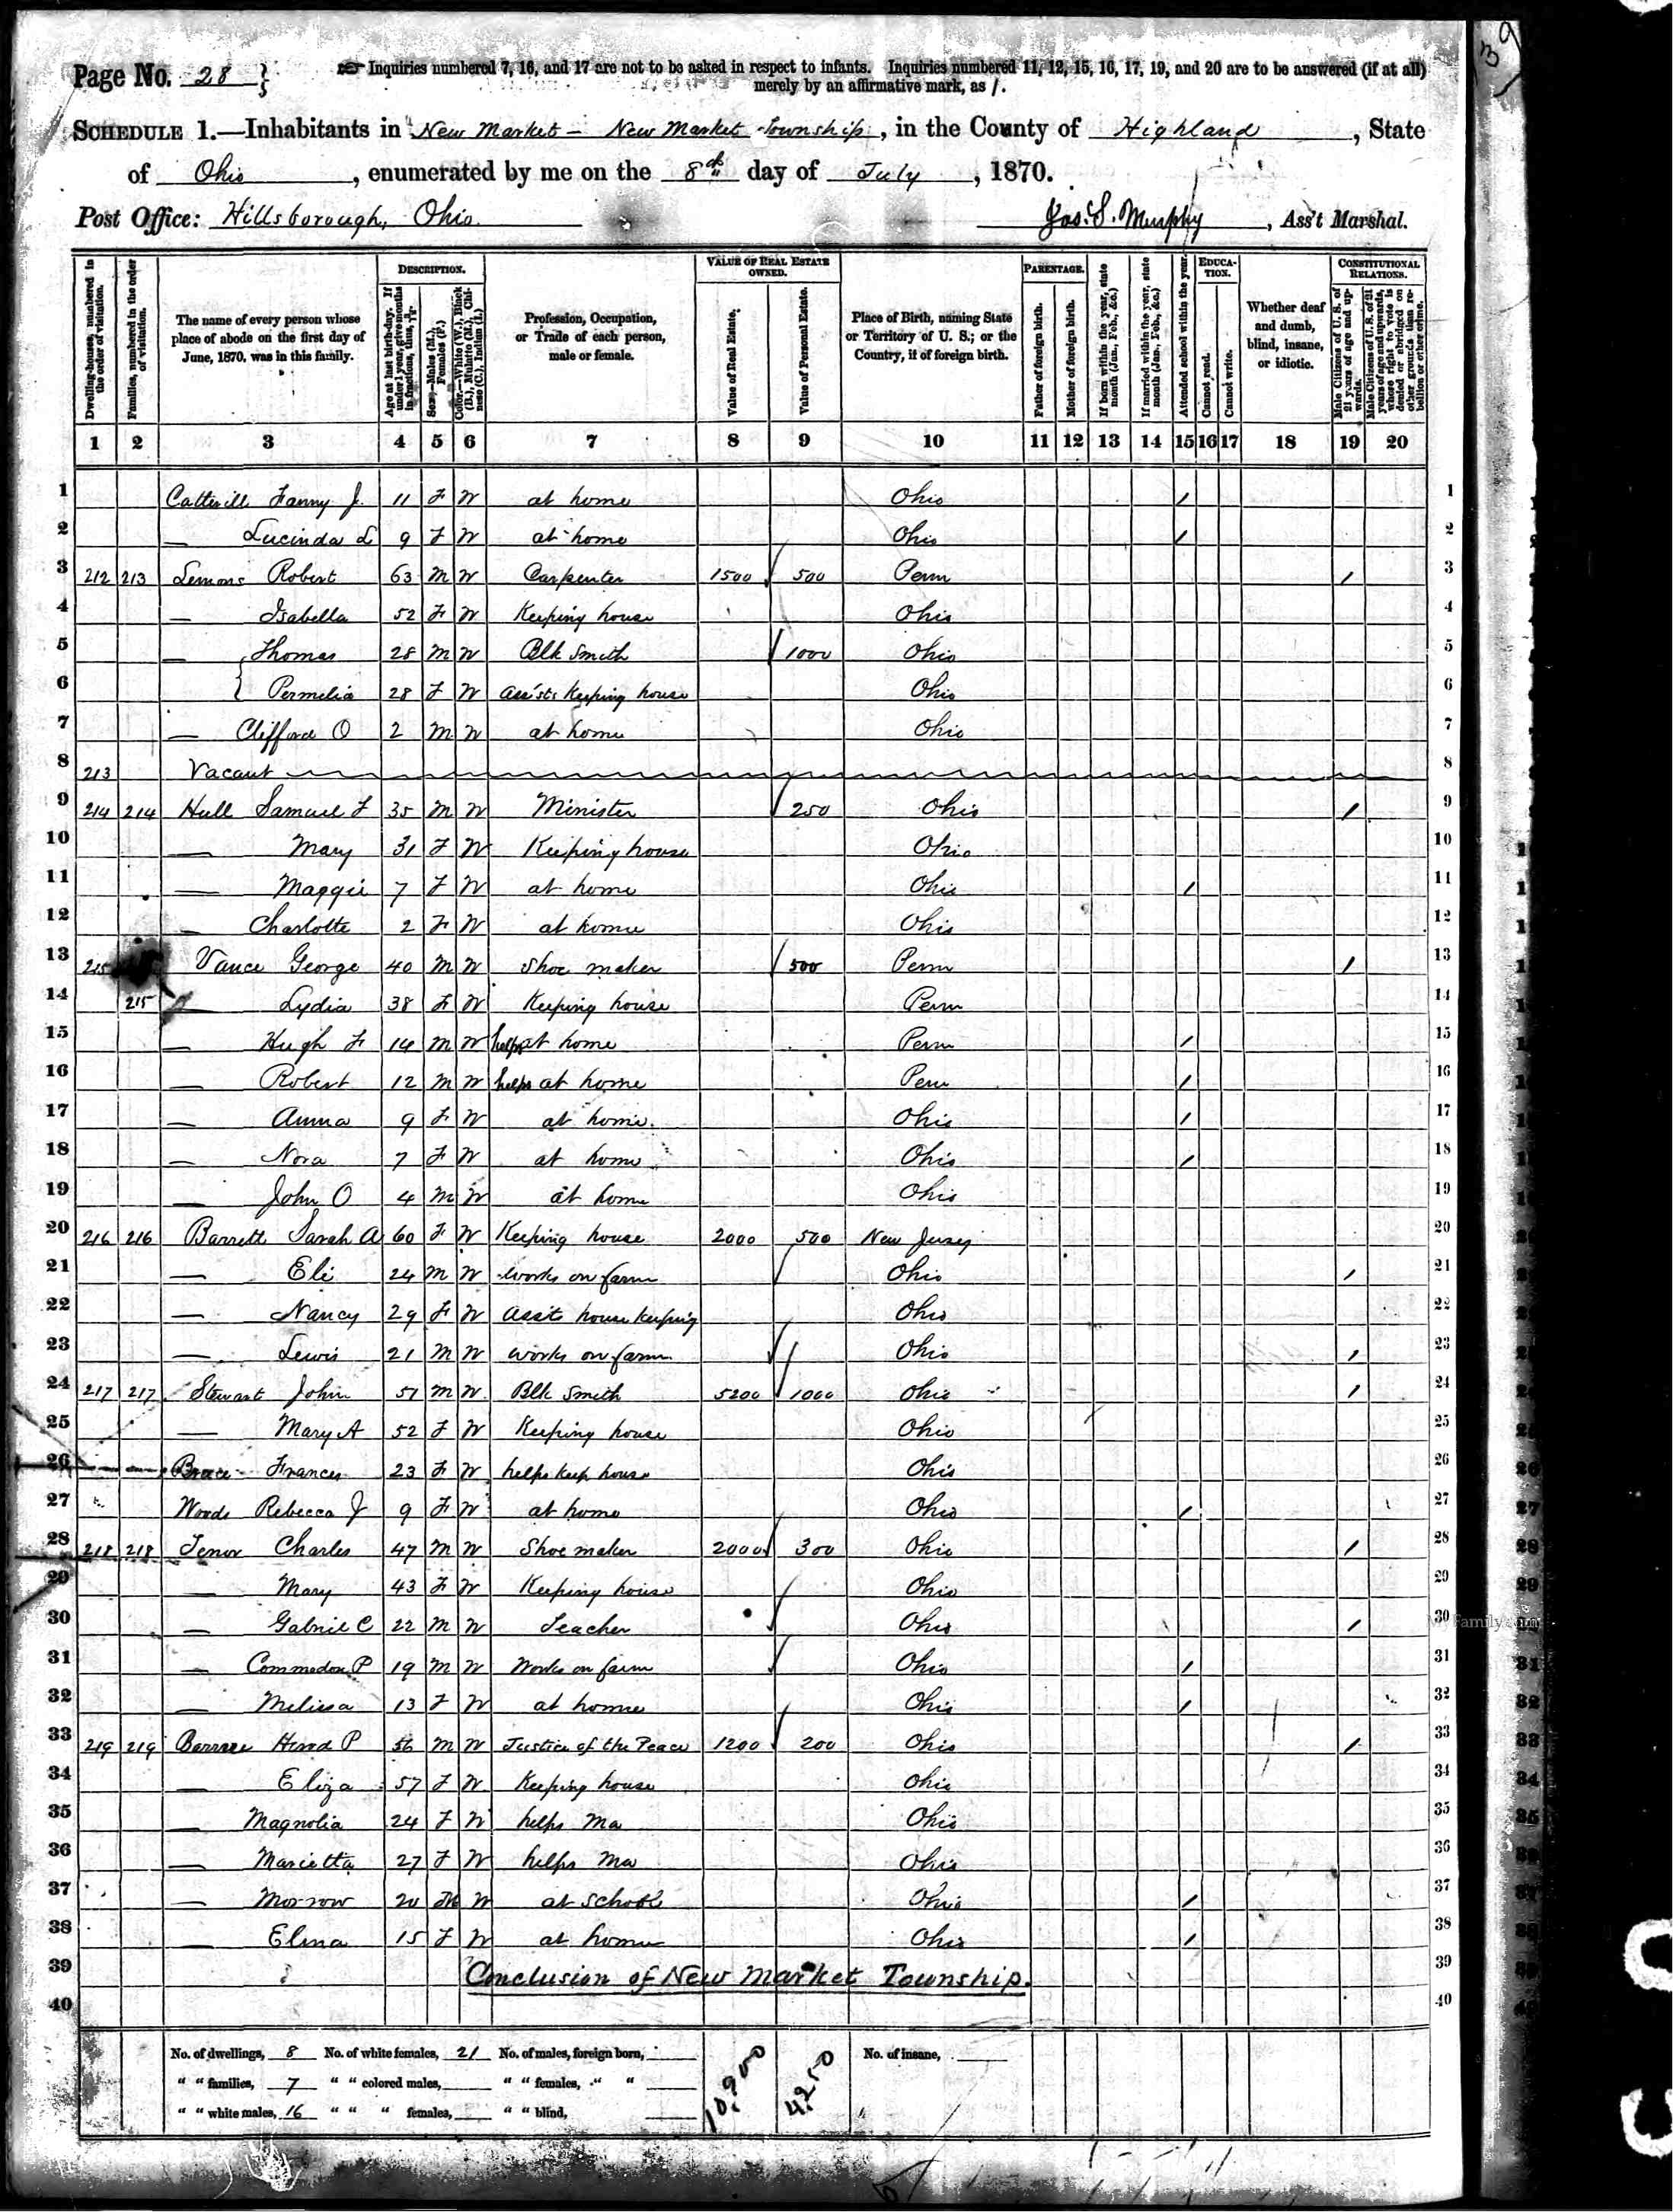 39
Page No. 28 } ☞ Inquiries numbered 7, 16, and 17 are not to be asked in respect to infants. Inquiries numbered 11, 12, 15, 16, 17, 19, and 20 are to be answered (if at all)
merely by an affirmative mark, as /.
SCHEDULE 1.—Inhabitants in New Market - New Market Township, in the County of Highland, State
of Ohio, enumerated by me on the 8th day of July, 1870.
Post Office: Hillsborough, Ohio. Jos. S. Murphy, Ass't Marshal.
Dwelling-houses, numbered in the order of visitation.
Families, numbered in the order of visitation.
The name of every person whose place of abode on the first day of June, 1870, was in this family.
DESCRIPTION.
Age at last birth-day. If under 1 year, give months in fractions, thus,
Sex.—Males (M.), Females (F.)
Color.—White (W.), Black (B.), Mulatto (M.), Chinese (C.), Indian (I.)
Profession, Occupation, or Trade of each person, male or female.
VALUE OF REAL ESTATE OWNED.
Value of Real Estate.
Value of Personal Estate.
Place of Birth, naming State or Territory of U. S.; or the Country, if of foreign birth.
PARENTAGE.
Father of foreign birth.
Mother of foreign birth.
If born within the year, state month (Jan., Feb., &c.)
If married within the year, state month (Jan., Feb., &c.)
Attended school within the year.
EDUCATION.
Cannot read.
Cannot write.
Whether deaf and dumb, blind, insane, or idiotic.
CONSTITUTIONAL RELATIONS.
Male Citizens of U. S. of 21 years of age and upwards.
Male Citizens of U. S. of 21 years of age and upwards, where right to vote is denied or abridged on other grounds than rebellion or other crime.
1 2 3 4 5 6 7 8 9 10 11 12 13 14 15 16 17 18 19 20
1 Catterill Fanny J. 11 F W at home Ohio / 1
2 — Lucinda L 9 F W at home Ohio / 2
3 212 213 Lemons Robert 63 M W Carpenter 1500 500 Penn / 3
4 — Isabella 52 F W Keeping house Ohio 4
5 — Thomas 28 M W Blk Smith 1000 Ohio 5
6 { Permelia 28 F W Ass'sts Keeping house Ohio 6
7 — Clifford O 2 M W at home Ohio 7
8 213 Vacant 8
9 214 214 Hull Samuel F 35 M W Minister 250 Ohio / 9
10 — Mary 31 F W Keeping house Ohio 10
11 — Maggie 7 F W at home Ohio / 11
12 — Charlotte 2 F W at home Ohio 12
13 215 Vance George 40 M W Shoe maker 500 Penn / 13
14 215 — Lydia 38 F W Keeping house Penn 14
15 — Hugh F 14 M W helps at home Penn / 15
16 — Robert 12 M W helps at home Penn / 16
17 — Anna 9 F W at home. Ohio / 17
18 — Nora 7 F W at home Ohio / 18
19 — John O 4 M W at home Ohio 19
20 216 216 Barrett Sarah A 60 F W Keeping house 2000 500 New Jersey 20
21 — Eli 24 M W works on farm Ohio / 21
22 — Nancy 29 F W Assts house keeping Ohio 22
23 — Lewis 21 M W works on farm Ohio / 23
24 217 217 Stewart John 51 M W Blk Smith 5200 1000 Ohio / 24
25 — Mary A 52 F W Keeping house Ohio 25
26 Brace Frances 23 F W helps keep house Ohio 26
27 Woods Rebecca J 9 F W at home Ohio / 27
28 218 218 Tenor Charles 47 M W Shoe maker 2000 300 Ohio / 28
29 — Mary 43 F W Keeping house Ohio 29
30 — Gabriel C 22 M W Teacher Ohio / 30
MyFamily.com
31 — Commodore P 19 M W Works on farm Ohio / 31
32 — Melissa 13 F W at home Ohio / 32
33 219 219 Barrere P 56 M W Justice of the Peace 1200 200 Ohio / 33
34 — Eliza 57 F W Keeping house Ohio 34
35 — Magnolia 24 F W helps Ma Ohio 35
36 — Marietta 27 F W helps Ma Ohio 36
37 — Morrow 20 M W at School Ohio / 37
38 — Elma 15 F W at home Ohio / 38
39 Conclusion of New Market Township. 39
40 40
No. of dwellings, 8 No. of white females, 21 No. of males, foreign born, 10,900 4250 No. of insane,
" " families, 7 " " colored males, " " females, " "
" " white males, 16 " " " females, " " blind,